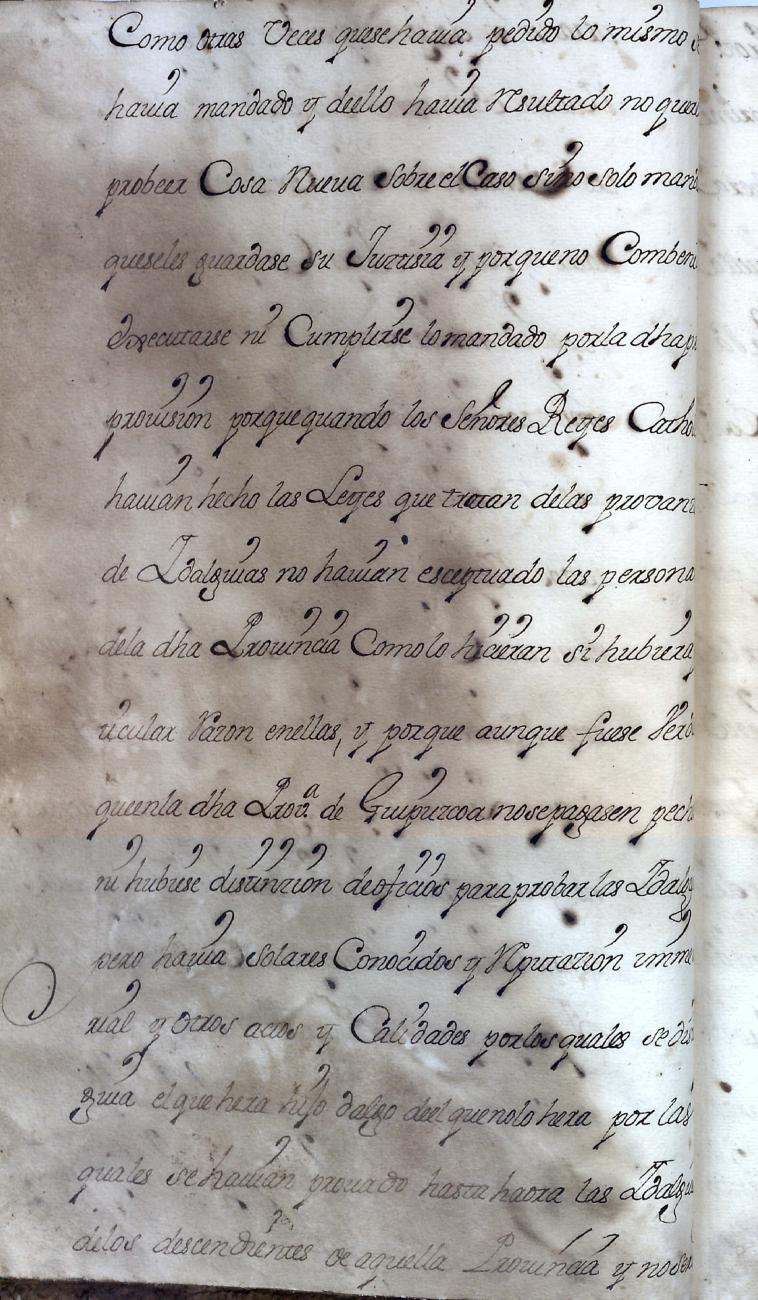 Como otras Veces quese havia pedido lo mismo se
havia mandado y deello havia Resultado no quer
probeer Cosa Nueva Sobre el Caso sino solo mand
queseles guardase su Justisia y porque no Combeni
Executarse ni Cumplirse lo mandado por la dha p
provision porque quando los Señores Reyes Catho
havian hecho las Leyes que tratan delas provanz
de Ydalguias no havian esceptuado las persona
dela dha Provincia Como lo hicieran si hubiera
ticular Razon enellas, y porque aunque fuese Verd
queenla dha Prov.ª de Guipuzcoa nosepagasen pech
ni hubiese distinzion deoficios para probar las Ydalg
pero havia Solares Conocidos y Reputazion imme
rial y otros actos y Calidades por los quales se dis
guia el que hera hijo dalgo deel quenolo hera por las
quales se havian provado hasta haora las Ydalgui
delos descendientes de aquella Provincia y no ser